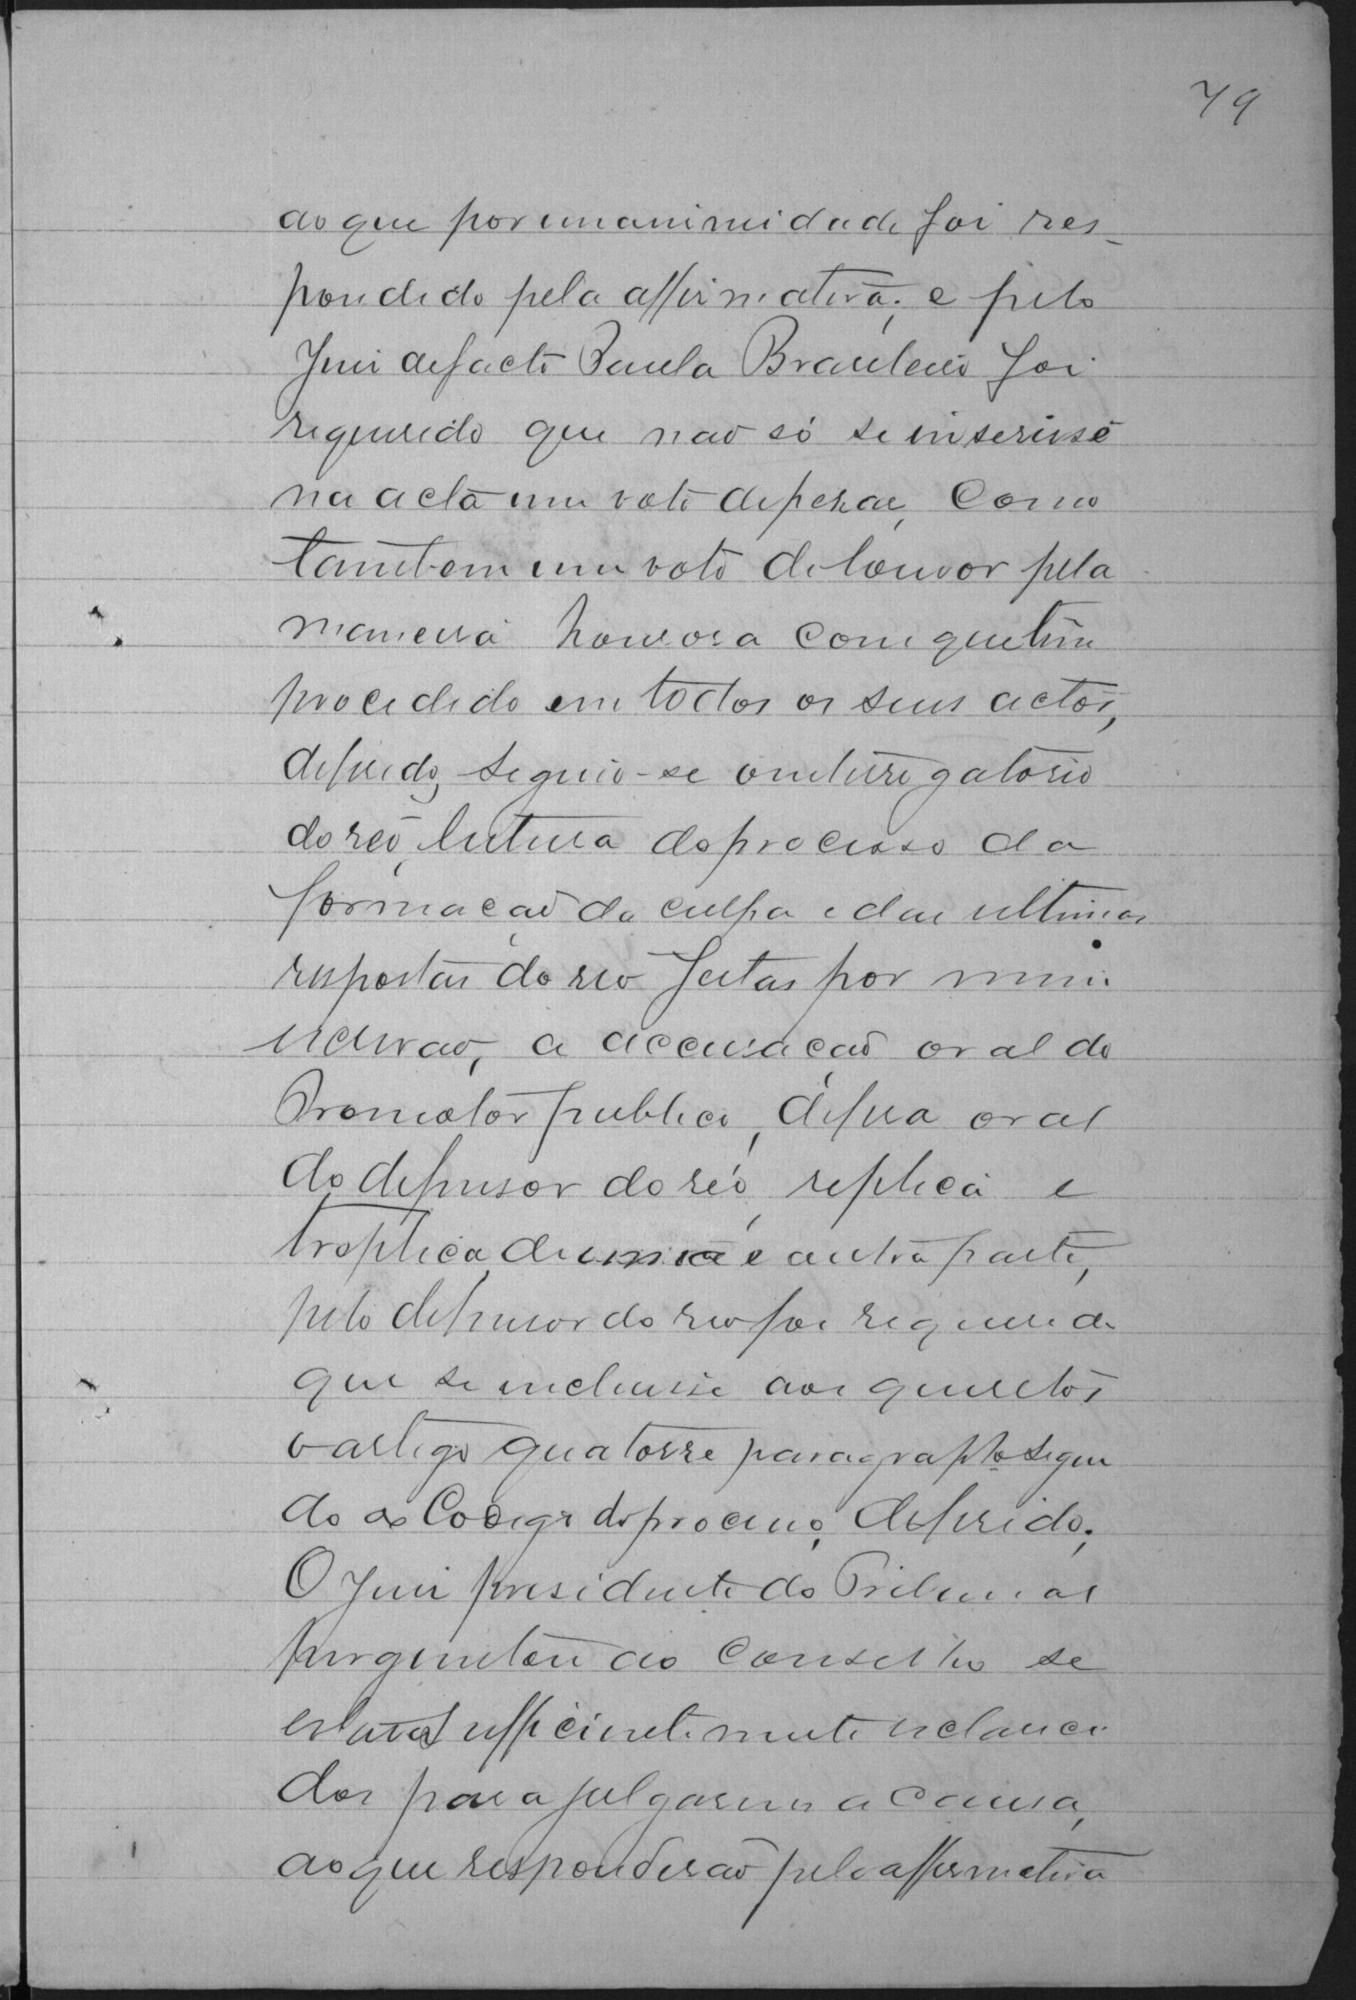 79
ao que por unanimidade foi res-
pondido pela affirmativa; e pelo
Juiz de facto Paula Brauleio foi
requerido que não só se inserisse
na acta um voto de pesar, como
tambem um voto de louvor pela
maneira honrosa com que tem
procedido em todos os seus actos,
deferido, seguio-se o interrogatorio
do réo, leitura do processo da
formação da culpa e das ultimas
respostas do reo feitas por mim
escrivão, a accusação oral do
Promotor publico, defesa oral
do defensor do réo, replica e
treplica, de uma e outra parte,
pelo defensor do reo foi requerido
que se incluisse aos quesitos
o artigo quatorse paragrapho segun
do do Codigo do processo, deferido;
O Juiz presidente do Tribunal
perguntou ao Conselho se
estava sufficientemente esclareci
dos para julgarem a causa,
ao que responderão pela affirmativa